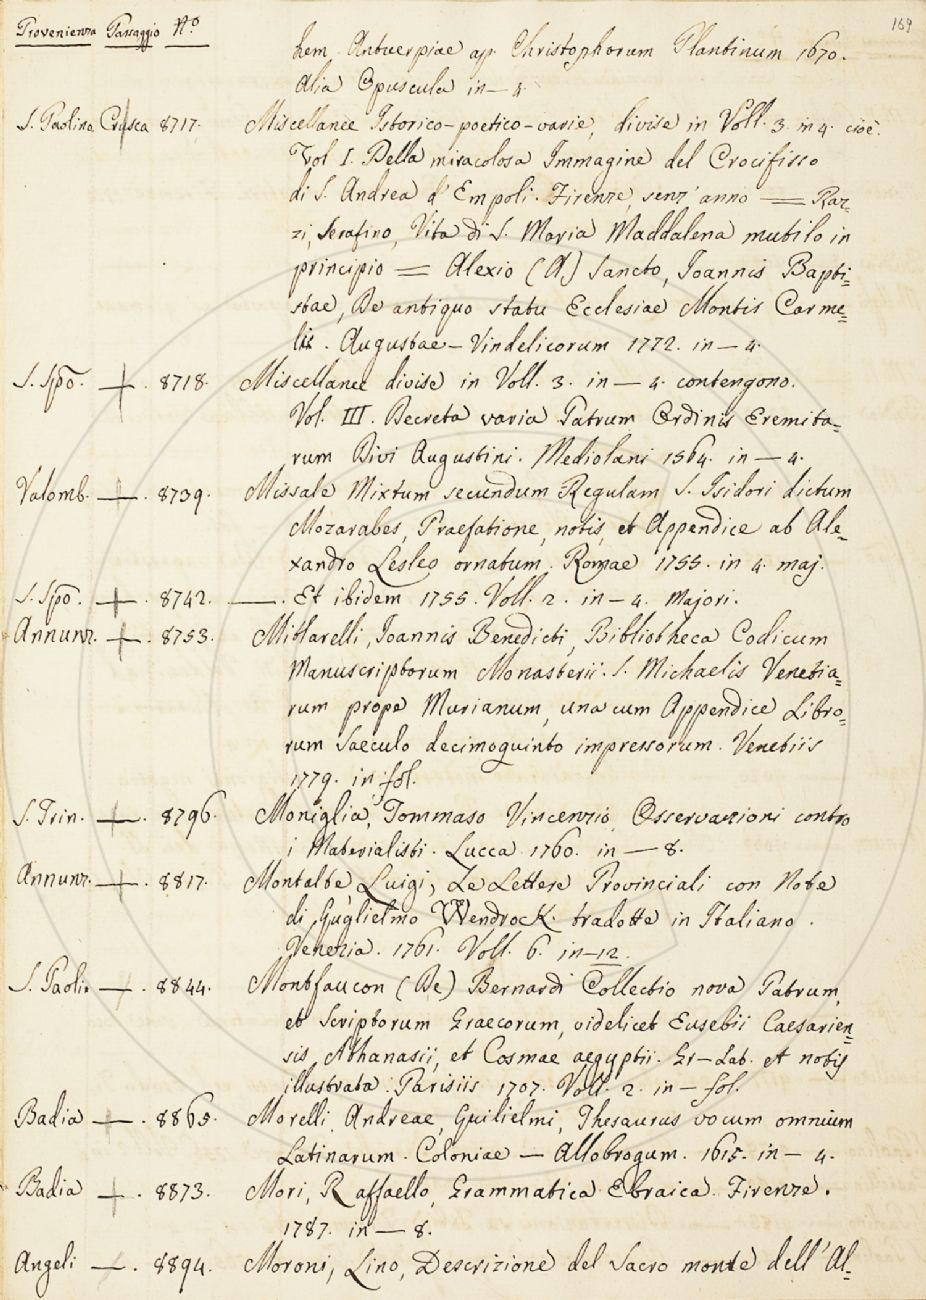 Provenienza Passaggio N.o 169
hem. Antuerpiae ap. Christophorum Plantinum 1670.
Alia Opuscula in — 4.
S. Paolino Crusca 8717. Miscellanee Istorico-poetico-varie, divise in Voll. 3. in 4. cioè.
Vol I. Della miracolosa Immagine del Crocifisso
di S. Andrea d'Empoli. Firenze, senz' anno = Raz=
zi, Serafino, Vita di S. Maria Maddalena mutilo in
principio = Alexio (A.) Sancto, Joannis Bapti=
stae, De antiquo statu Ecclesiae Montis Carme=
lis. Augustae-Vindelicorum 1772. in — 4.
S. Spo. — . 8718. Miscellanee divise in Voll. 3. in — 4. contengono.
Vol. III. Decreta varia Patrum Ordinis Eremita=
rum Divi Augustini. Mediolani 1564. in — 4.
Valomb. — . 8739. Missale Mixtum secundum Regulam S. Isidori dictum
Mozarabes, Praefatione, notis, et Appendice ab Ale=
xandro Lesleo ornatum. Romae 1755. in 4. maj.
S. Spo. — . 8742. — . Et ibidem 1755. Voll. 2. in — 4. Majori.
Annunz. — . 8753. Mittarelli, Joannis Benedicti, Bibliotheca Codicum
Manuscriptorum Monasterii. S. Michaelis Venetia=
rum prope Murianum, una cum Appendice Libro=
rum Saeculo decimoquinto impressorum. Venetiis
1779. in fol.
S. Trin. — . 8796. Moniglia, Tommaso Vincenzio, Osservazioni contro
i Materialisti. Lucca 1760. in — 8.
Annunz. — . 8817. Montalte Luigi, Le Lettere Provinciali con Note
di Guglielmo WendrocK tradotte in Italiano.
Venezia. 1761. Voll. 6. in — 12.
S. Paoli. — . 8844. Montfaucon (De) Bernardi Collectio nova Patrum,
et Scriptorum Graecorum, videlicet Eusebii Caesarien=
sis, Athanasii, et Cosmae aegyptii. Gr-Lat. et notis
illustrata. Parisiis 1707. Voll. 2. in — fol.
Badia — . 8865. Morelli, Andreae, Guilielmi, Thesaurus vocum omnium
Latinarum. Coloniae — Allobrogum. 1615. in — 4.
Badia — . 8873. Mori, Raffaello, Grammatica Ebraica. Firenze.
1787. in — 8.
Angeli — . 8894. Moroni, Lino, Descrizione del Sacro monte dell'Al=